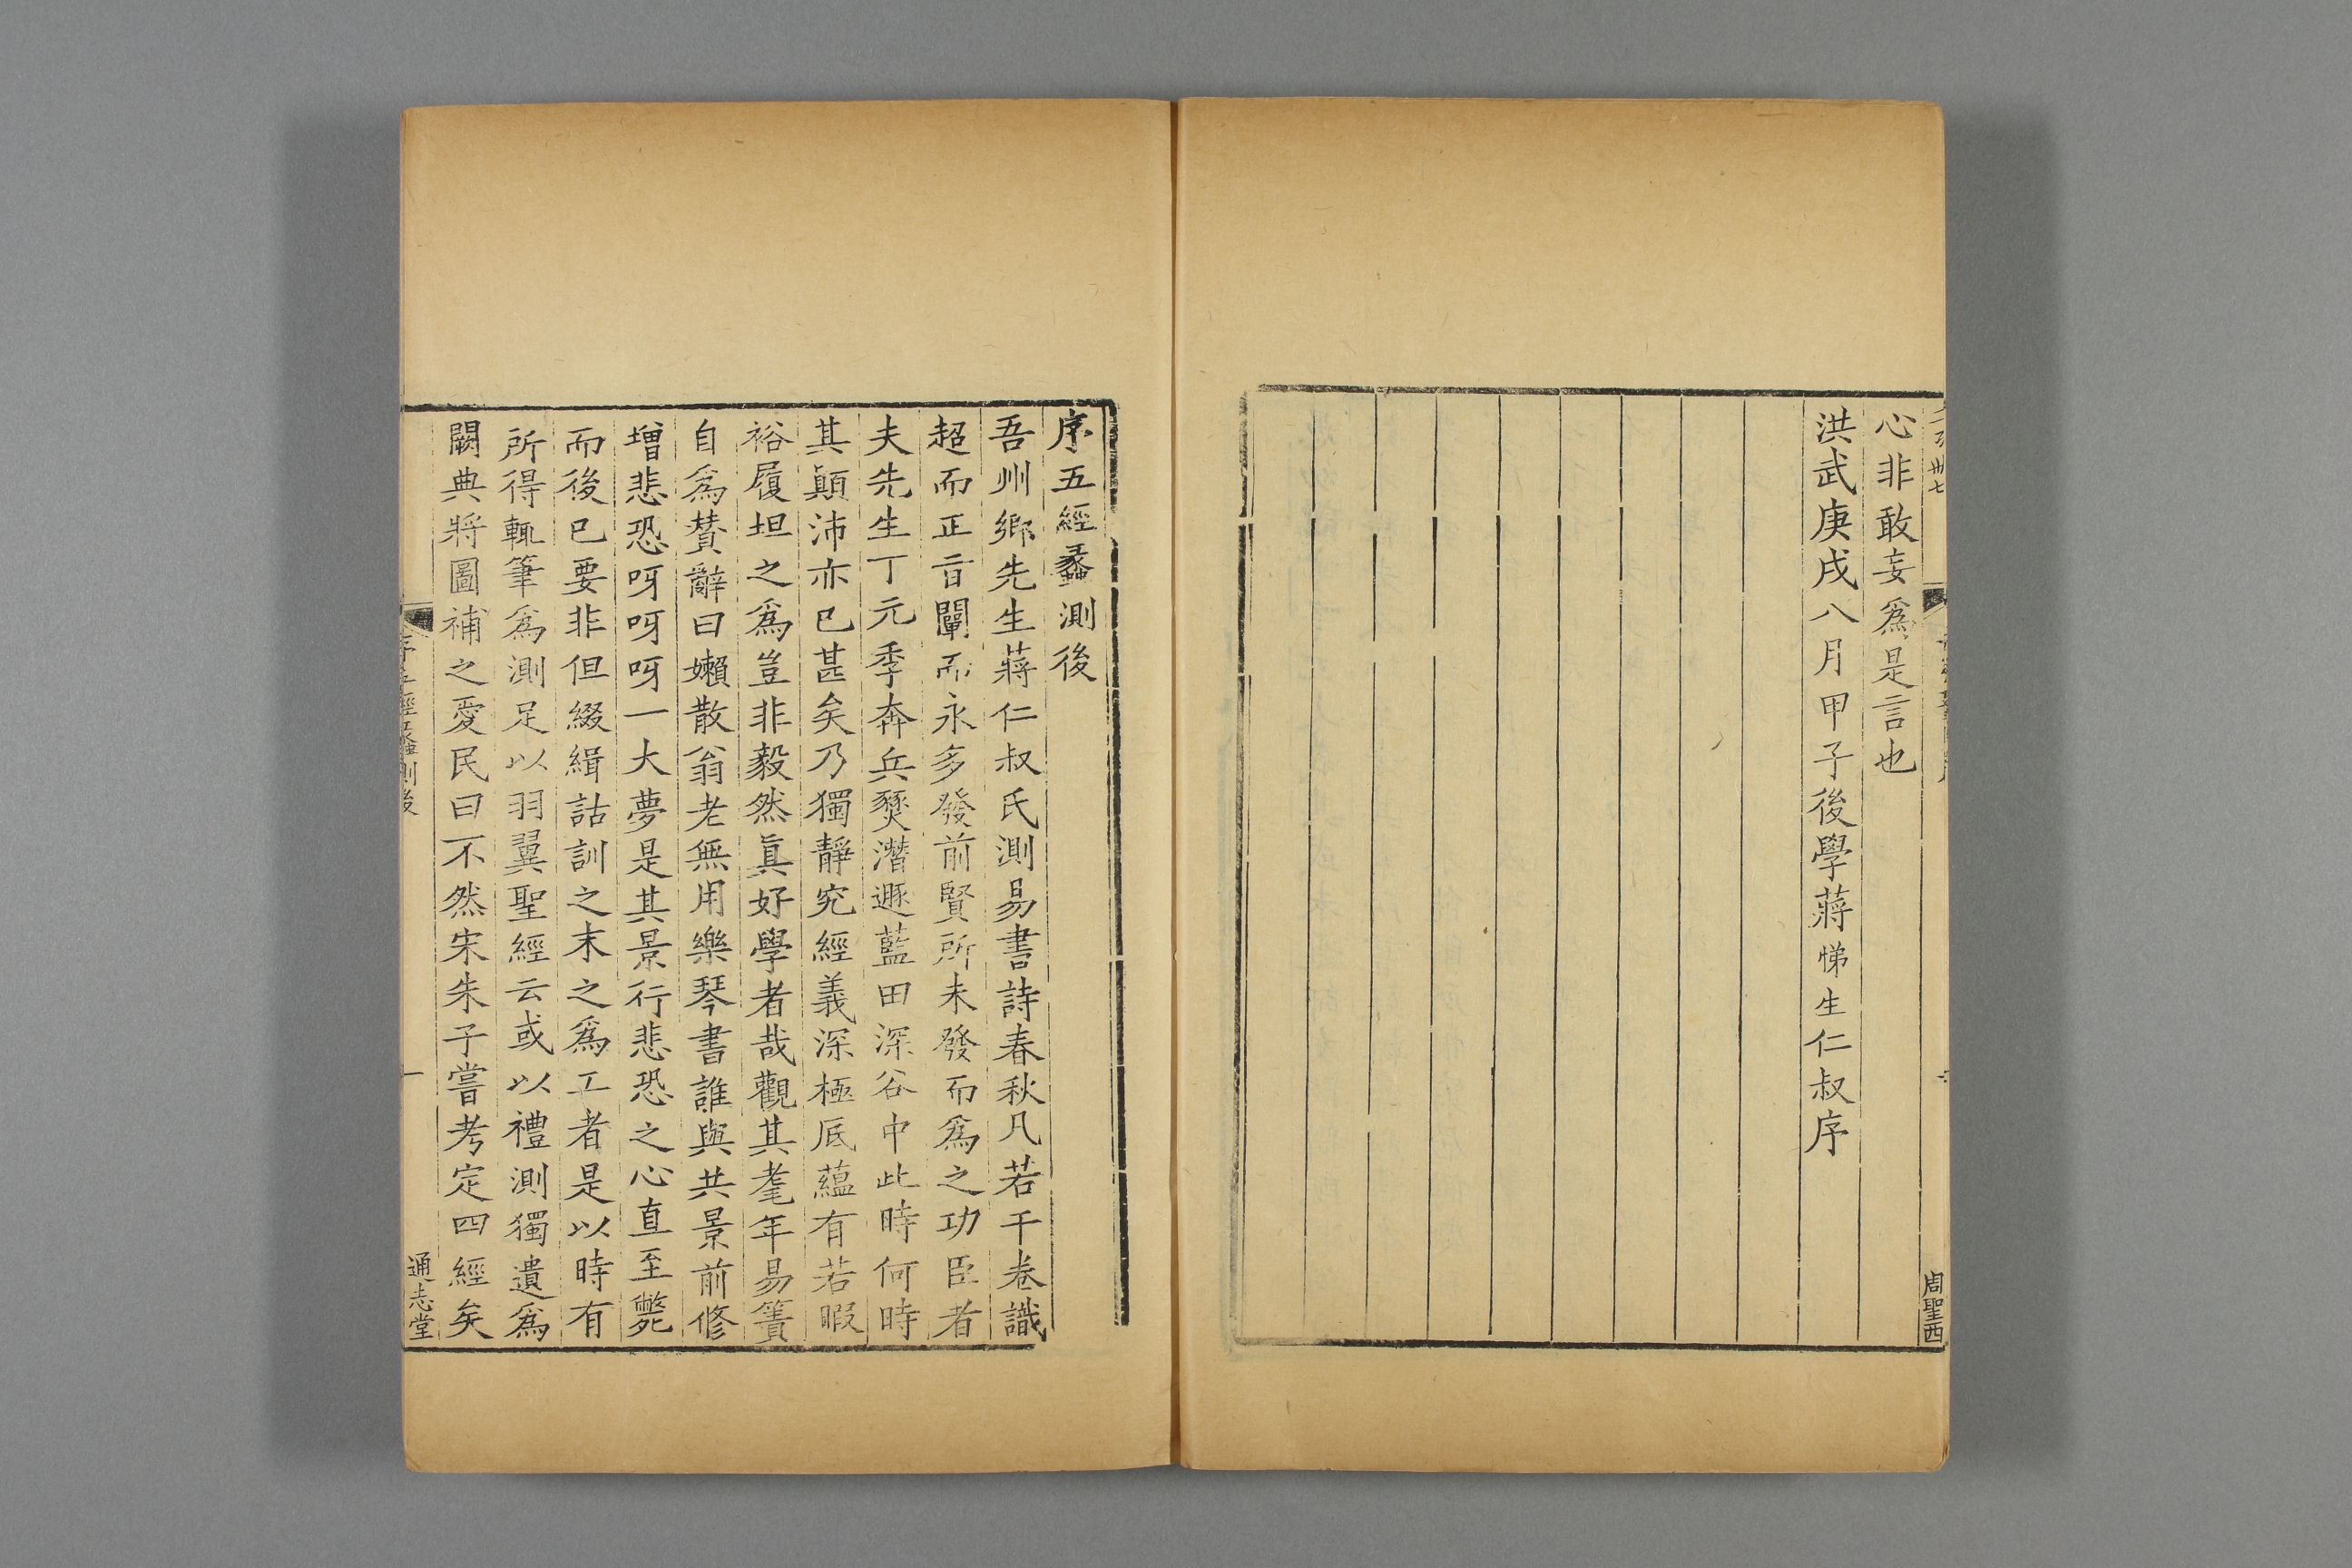 心非敢妄爲是言也
洪武庚戌八月甲子後學蔣悌生仁叔序
周聖西
序五經蠡測後
吾州鄉先生蔣仁叔氏測易書詩春秋凡若干卷識
超而正旨闡而永多發前賢所未發而爲之功臣者
夫先生丁元季奔兵燹潛遯藍田深谷中此時何時
其顚沛亦已甚矣乃獨靜究經義深極底蘊有若暇
裕履坦之爲豈非毅然眞好學者哉觀其耄年易簀
自爲賛辭曰嬾散翁老無用樂琴書誰與共景前修
增悲恐呀呀呀一大夢是其景行悲恐之心直至斃
而後已要非但綴緝詁訓之末之爲工者是以時有
所得輒筆爲測足以羽翼聖經云或以禮測獨遺爲
闕典將圖補之愛民曰不然宋朱子嘗考定四經矣
序五經蠡測後
一
通志堂